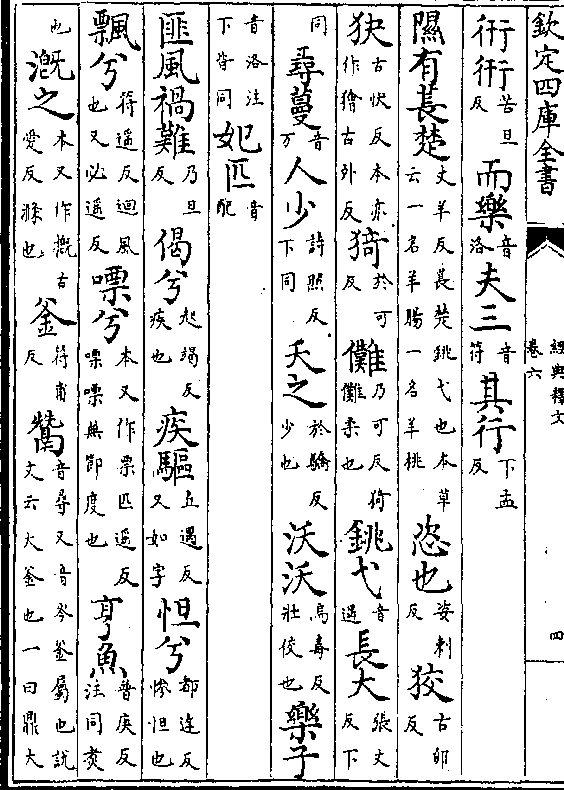 欽定四庫全書 經典釋文 卷六 四
衎衎苦旦反而樂音洛夫三音符其行下孟反
隰有萇楚丈羊反萇楚銚弋也本草云一名羊腸一名羊桃恣也姿刺反狡古卯反
古快反本亦作獪古外反猗於可反儺乃可反猗儺柔也銚弋音遥長大張丈反下
同尋蔓音万人少詩照反下同夭之於驕反少也沃沃烏毒反壯佼也樂子
音洛注下皆同妃匹音配
匪風禍難乃旦反偈兮起竭反疾也疾驅丘遇反又如字怛兮都達反慘怛也
飄兮符遥反迴風也又必遥反嘌兮本又作票匹遥反嘌嘌無節度也亨魚普庚反注同煑
也溉之本又作摡古愛反滌也釜符甫反鬵音尋又音岑釜屬也說文云大釜也一曰鼎大